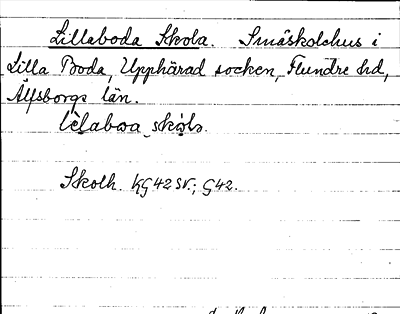 Lillaboda Skola. Småskolehus i
Lilla Boda, Upphärad socken, Flundre hd,
Älfsborgs län.
skola.
Skolh. KG 42 SV.; G 42.